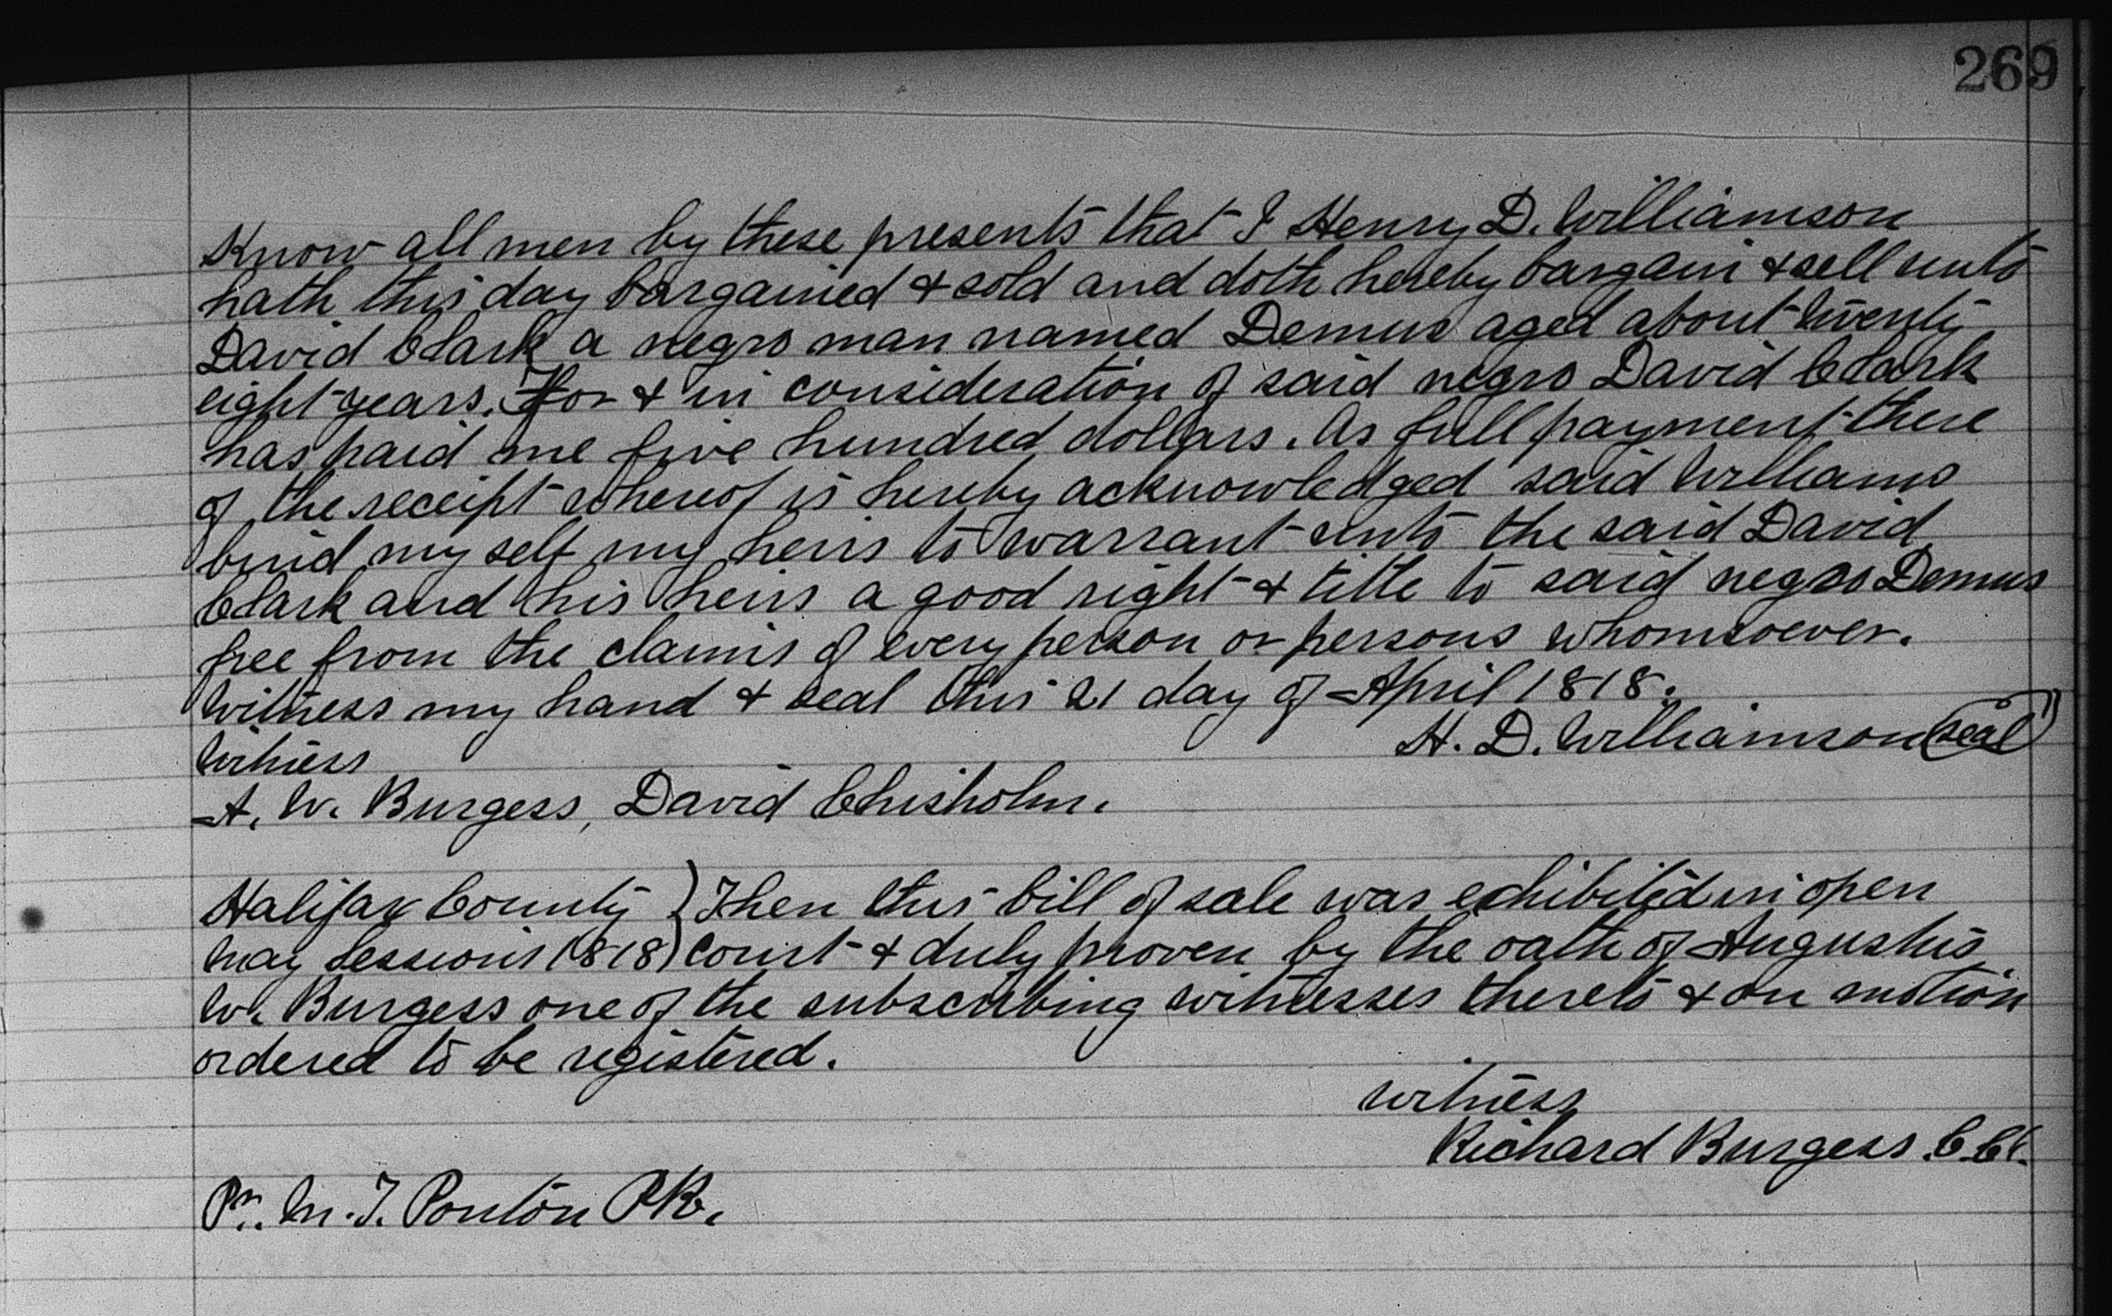 269
Know all men by these presents that I Henry D. Williamson
hath this day bargained & sold and doth hereby bargain & sell unto
David Clark a negro man named Demus aged about twenty
eight years. For & in consideration of said negro David Clark
has paid me five hundred dollars. As full payment there
of the receipt whereof is hereby acknowledged said Williams
bind my self my heirs to warrant unto the said David
Clark and his heirs a good right & title to said negro Demus
free from the claims of every person or persons whomsoever.
Witness my hand & seal this 21 day of April 1818.
Witness H. D. Williamson (seal)
A. W. Burgess, David Chisholm.
Halifax County ) Then this bill of sale was exhibited in open
May Sessions 1818) court & duly proven by the oath of Augustus
W. Burgess one of the subscribing witnesses thereto & on motion
ordered to be registered.
Witness
Richard Burgess C.Ct.
Pr. M. T. Ponton P.R.